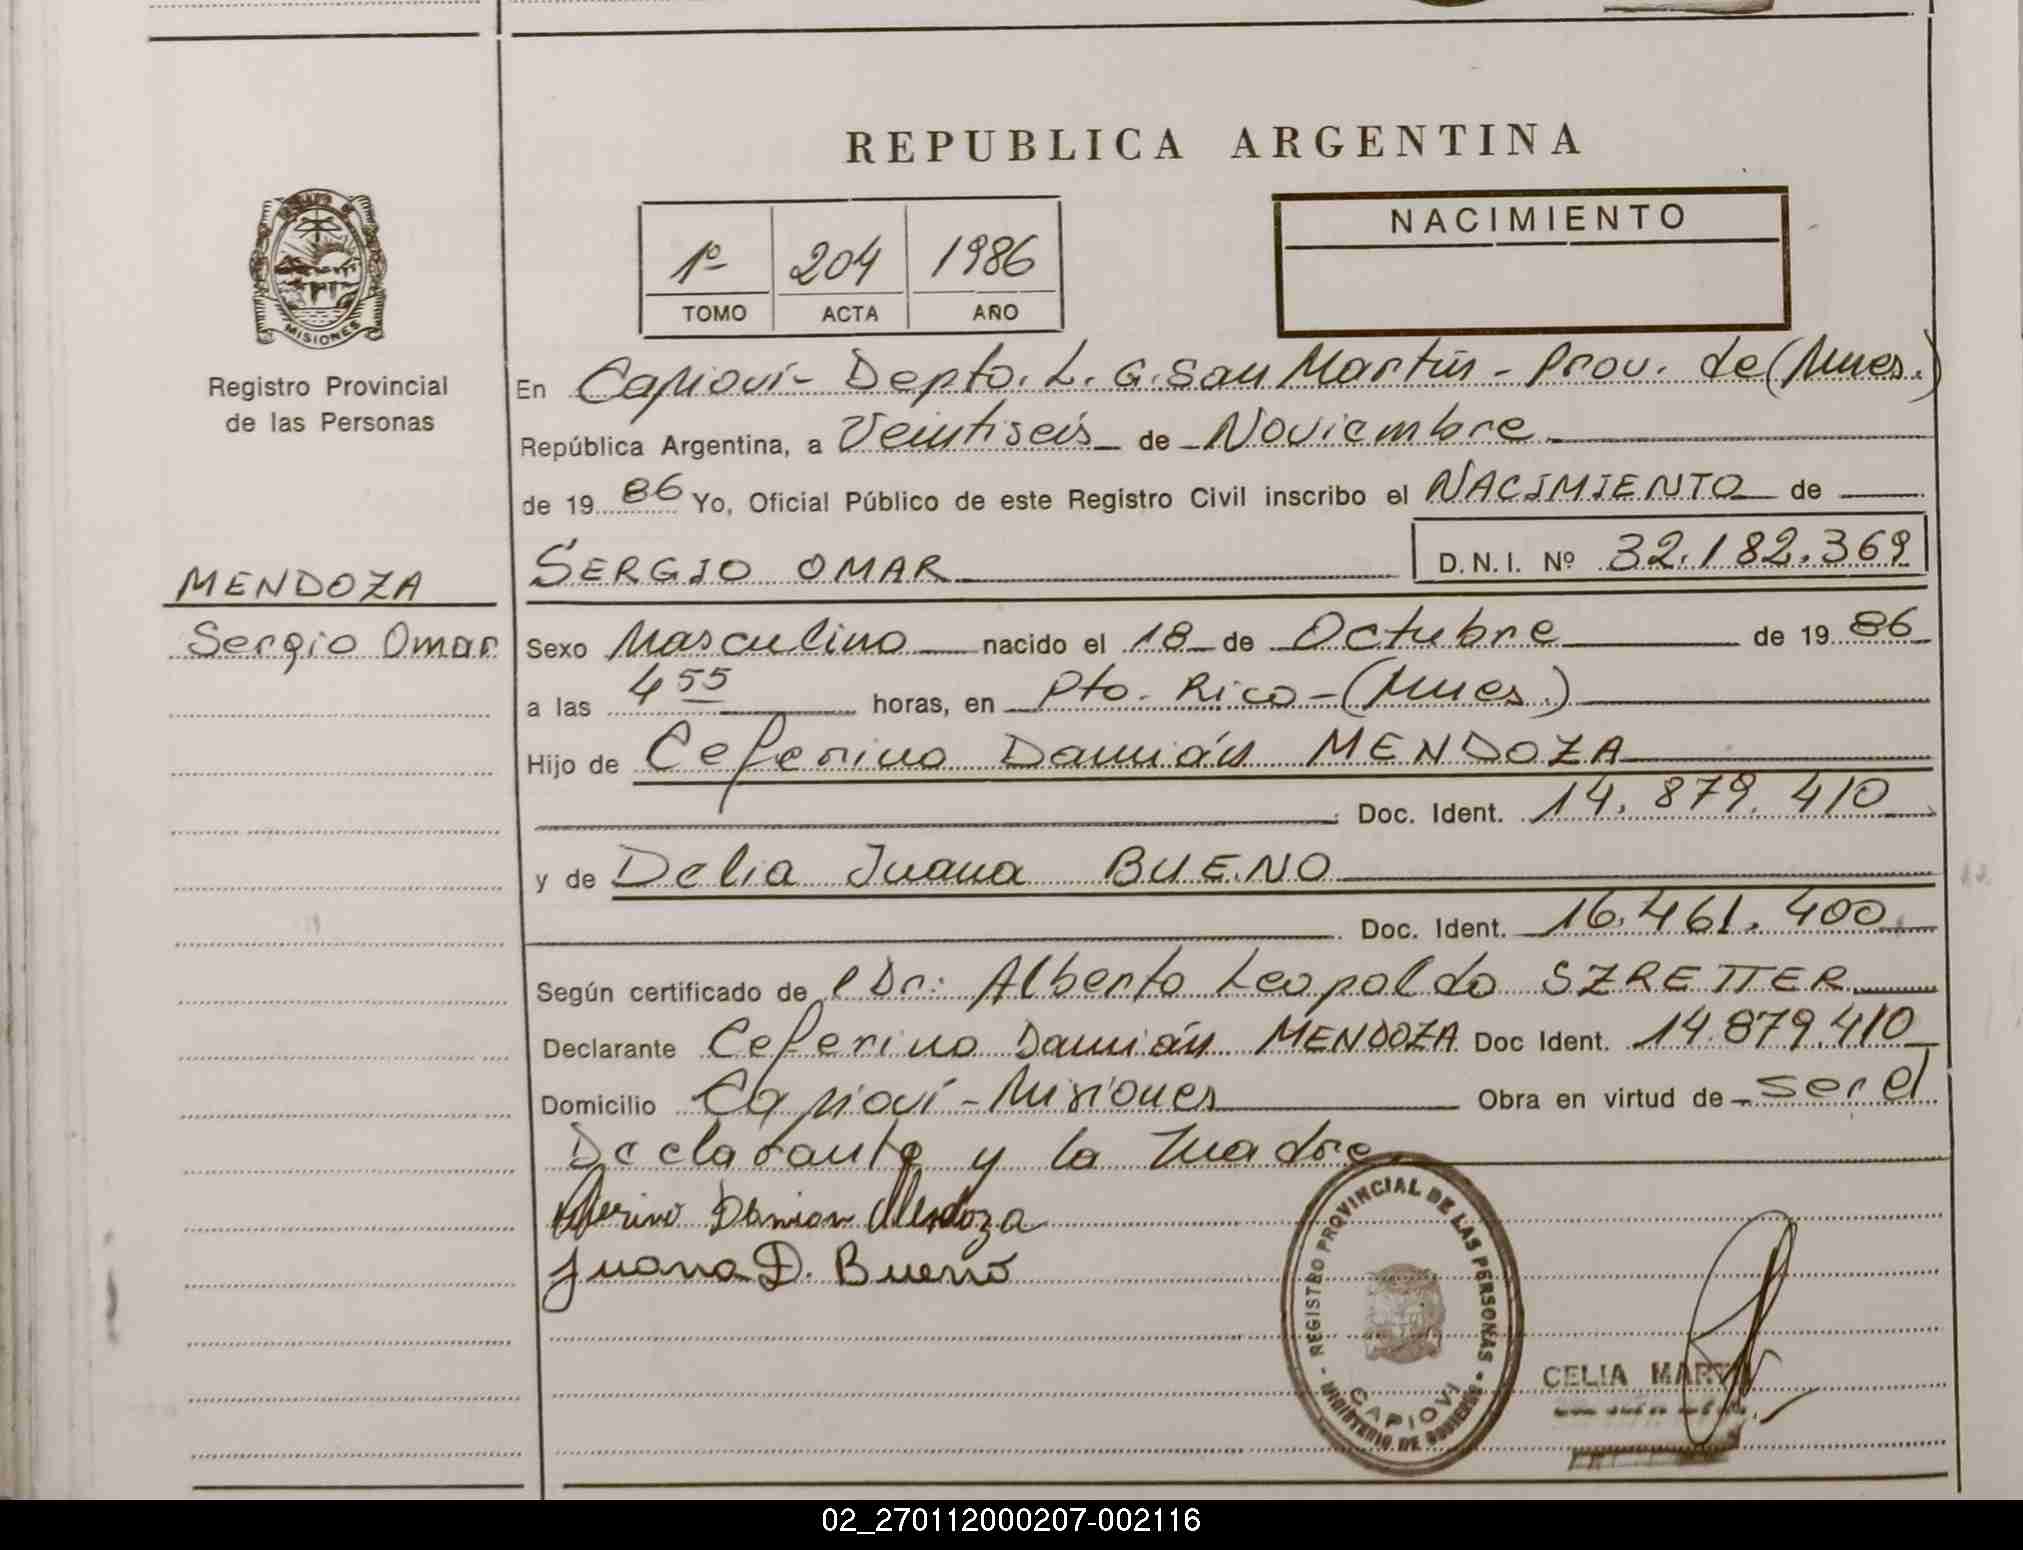 REPUBLICA ARGENTINA
1º 204 1986
TOMO ACTA AÑO
NACIMIENTO
MISIONES
Registro Provincial
de las Personas
En Capioví - Depto. L. G. San Martín - Prov. de (Mnes.)
República Argentina, a Veintiseis de Noviembre
de 19 86 Yo, Oficial Público de este Registro Civil inscribo el NACIMIENTO de
MENDOZA
Sergio Omar
SERGIO OMAR D.N.I. Nº 32.182.369
Sexo Masculino nacido el 18 de Octubre de 19 86
a las 4 55 horas, en Pto. Rico - (Mnes.)
Hijo de Ceferino Damián MENDOZA
Doc. Ident. 14.879.410
y de Delia Juana BUENO
Doc. Ident. 16.461.400
Según certificado de l Dr: Alberto Leopoldo SZRETTER
Declarante Ceferino Damián MENDOZA Doc Ident. 14.879.410
Domicilio Capioví - Misiones Obra en virtud de ser el
Declarante y la madre
Damian Mendoza
Juana D. Bueno
REGISTRO PROVINCIAL DE LAS PERSONAS
MINISTERIO DE GOBIERNO
CAPIOVI
CELIA
02_270112000207-002116